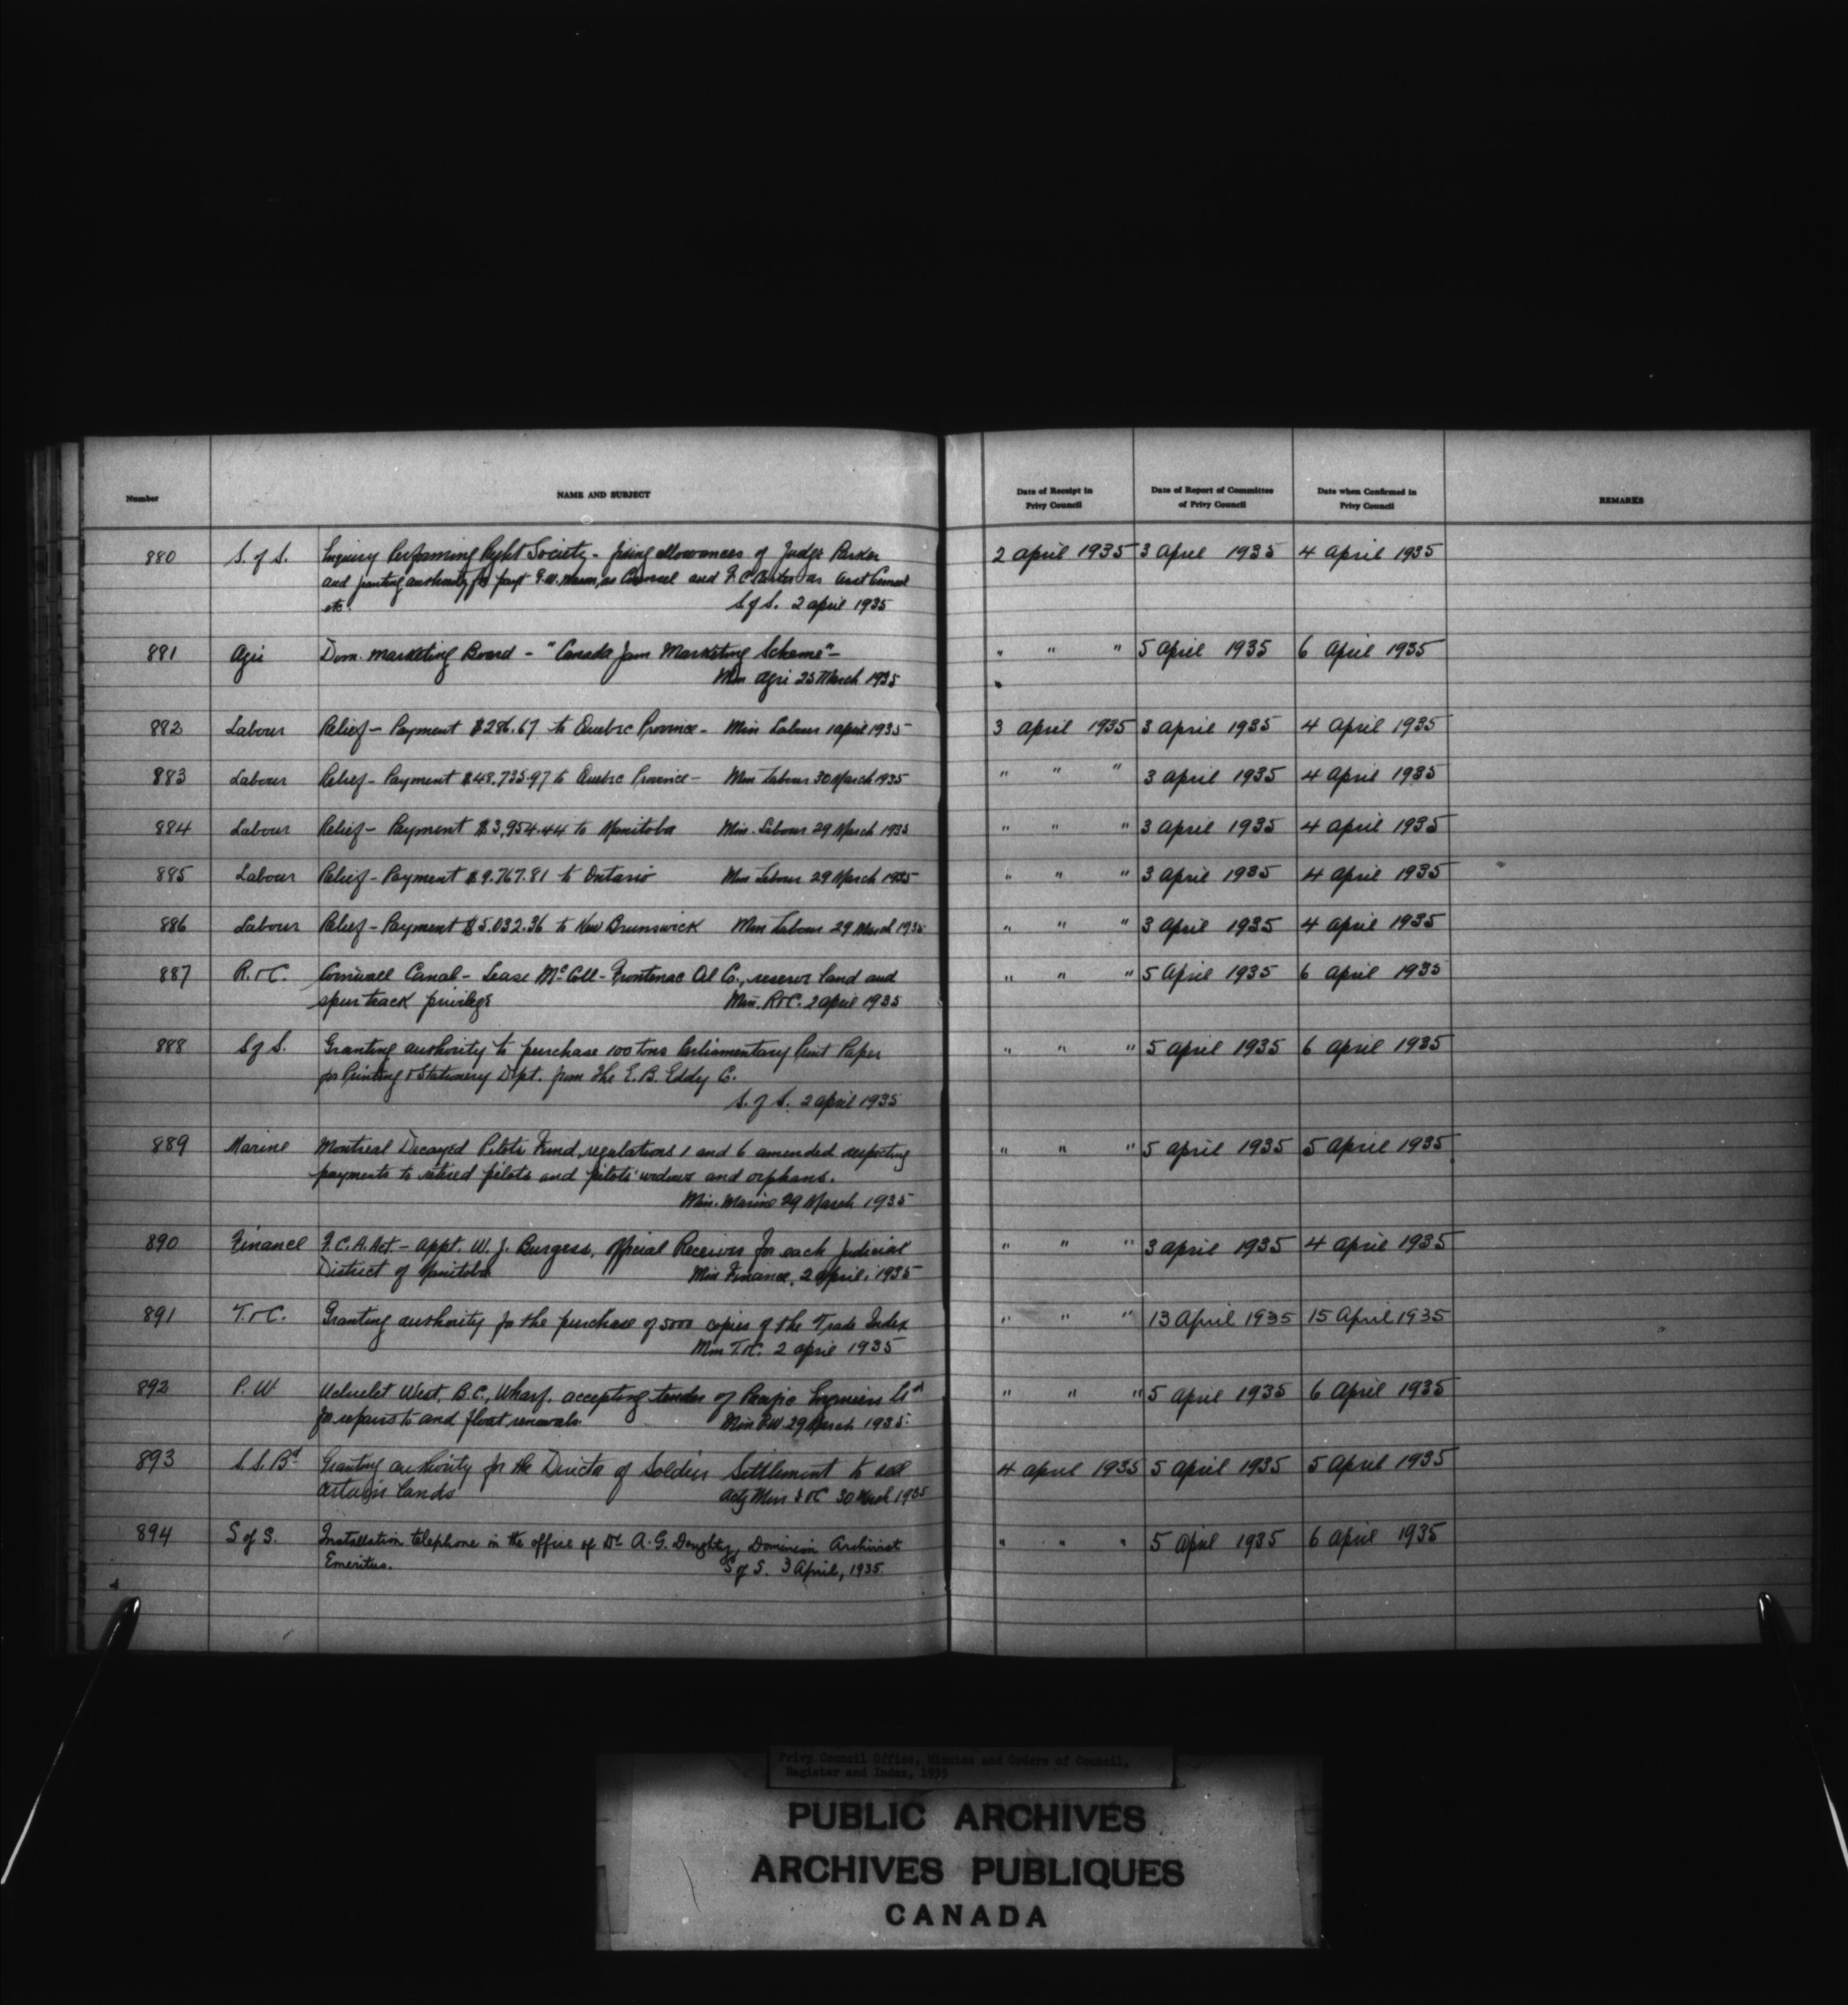 Number
NAME AND SUBJECT
Date of Receipt in Privy Council
Date of Report of Committee of Privy Council
Date when Confirmed in Privy Council
REMARKS
880 S. of S. Inquiry Performing Right Society - fixing allowances of Judge Parker 2 April 1935 3 April 1935 4 April 1935
and granting authority for payt as Counsel and as Asst Counsel
etc. S of S. 2 April 1935
881 Agri Dom. Marketing Board - "Canada Jam Marketing Scheme" - " " " 5 April 1935 6 April 1935
Min Agri 23 March 1935
882 Labour Relief - Payment $286.67 to Quebec Province - Min Labour 1 April 1935 3 April 1935 3 April 1935 4 April 1935
883 Labour Relief - Payment $48,735.97 to Quebec Province - Min Labour 30 March 1935 " " " 3 April 1935 4 April 1935
884 Labour Relief - Payment $3,954.44 to Manitoba Min. Labour 29 March 1935 " " " 3 April 1935 4 April 1935
885 Labour Relief - Payment $9.767.81 to Ontario Min Labour 29 March 1935 " " " 3 April 1935 4 April 1935
886 Labour Relief - Payment $5.032.36 to New Brunswick Min Labour 29 March 1935 " " " 3 April 1935 4 April 1935
887 R. & C. Cornwall Canal - Lease McColl-Frontenac Oil Co., reserve land and " " " 5 April 1935 6 April 1935
spur track privilege Min. R&C. 2 April 1935
888 S of S. Granting authority to purchase 100 tons Parliamentary Print Paper " " " 5 April 1935 6 April 1935
for Printing & Stationery Dept. from The E. B. Eddy Co.
S. of S. 2 April 1935
889 Marine Montreal Decayed Pilots Fund, regulations 1 and 6 amended respecting " " " 5 April 1935 5 April 1935
payments to retired pilots and pilots' widows and orphans.
Min. Marine 29 March 1935
890 Finance F.C.A. Act. - Appt. W. J. Burgess, Official Receiver for each Judicial " " " 3 April 1935 4 April 1935
District of Manitoba Min Finance, 2 April, 1935
891 T. & C. Granting authority for the purchase of 5000 copies of the Trade Index " " " 13 April 1935 15 April 1935
Min T.&C. 2 April 1935
892 P. W Ucluelet West, B.C., Wharf. accepting tender of Pacific Engineers Ltd " " " 5 April 1935 6 April 1935
for repairs to and float renewals. Min P.W 29 March 1935.
893 S.S. Bd Granting authority for the Director of Soldier Settlement to sell 4 April 1935 5 April 1935 5 April 1935
certain lands Actg Min I & C 30 March 1935
894 S of S. Installation telephone in the office of Dr A. G. Doughty, Dominion Archivist " " " 5 April 1935 6 April 1935
Emeritus. S of S. 3 April, 1935.
Privy Council Office, Minutes and Orders of Council,
Register and Index, 1935
PUBLIC ARCHIVES
ARCHIVES PUBLIQUES
CANADA